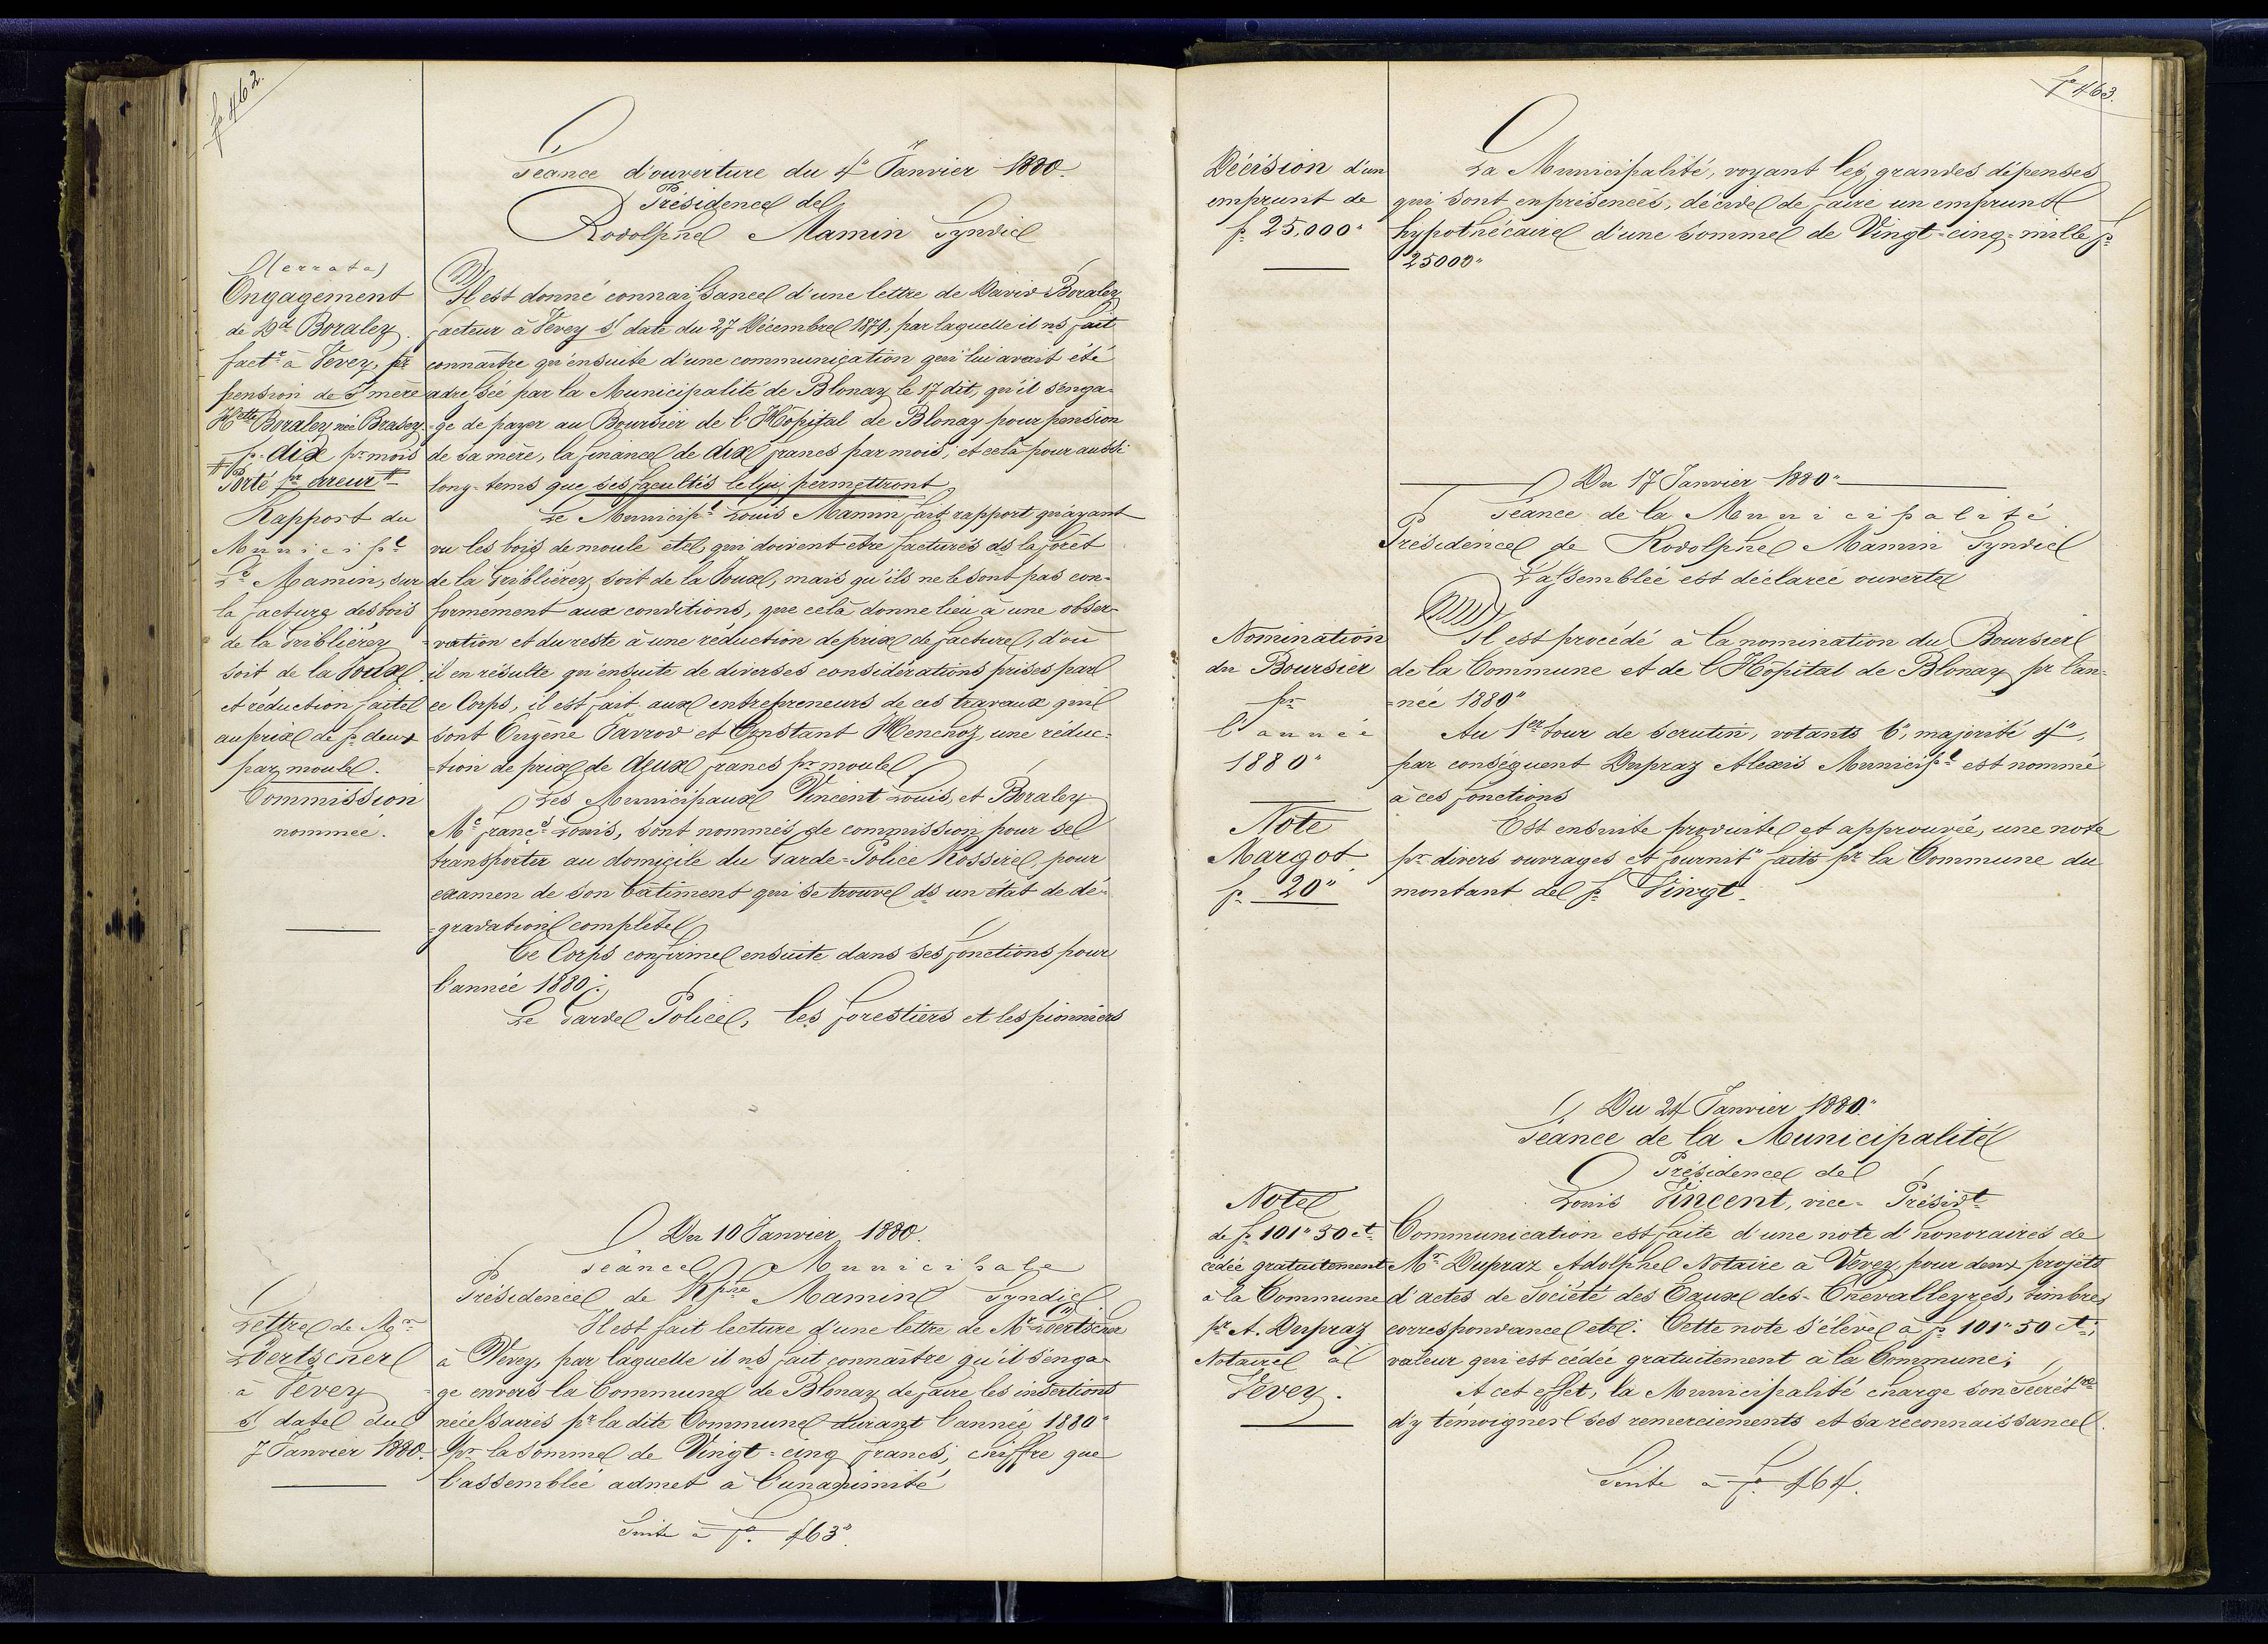 fo 462.
Séance d'ouverture du 4" Janvier 1880.
Présidence de
Rodolphe Mamin Syndic
(errata)
Engagement
de Dd Boraley
factr à Vevey, pr
pension de s/ mère
Hette Boraley née Brasey
fr. dix pr mois
# Porté pr erreur #
Il est donné connaissance d'une lettre de David Boraley
facteur à Vevey s/ date du 27 Décembre 1879, par laquelle il ns fait
connaître qu'ensuite d'une communication qui lui avait été
adressée par la Municipalité de Blonay le 17 dit, qu'il s'enga-
-ge de payer au Boursier de l'Hôpital de Blonay pour pension
de sa mère, la finance de dix francs par mois; et celà pour aussi
long-tems que ses facultés le lui permettront
Rapport du
Municipl
Ls Mamin, sur
la facture des bois
de la Griblièrez
soit de la Joux
et réduction faite
au prix de fr deux
par moule.
Le Municipl Louis Mamin fait rapport qu'ayant
vu les bois de moule etc, qui doivent être facturés ds la forêt
de la Griblièrez soit de la Joux, mais qu'ils ne le sont pas con-
formément aux conditions, que celà donne lieu à une obser-
-vation et du reste à une réduction de prix de facture, d'où
il en résulte qu'ensuite de diverses considérations prises par
ce Corps, il est fait aux entrepreneurs de ces travaux qui
sont Eugène Favrod et Constant Henchoz, une réduc-
-tion de prix de deux francs pr moule
Commission
nommée.
Les Municipaux Vincent Louis, et Boraley
Me francs Louis, sont nommés de commission pour se
transporter au domicile du Garde-Police Rossire, pour
examen de son bâtiment qui se trouve ds un état de dé-
-gradation complete
Ce Corps confirme ensuite dans ses fonctions pour
l'année 1880:
Le Garde Police, les forestiers et les pionniers
Du 10 Janvier 1880.
Séance Municipale
Présidence de Rphe Mamin Syndic
Lettre de Mr
Loertscher
à Vevey
s/ date du
7 Janvier 1880.
Il est fait lecture d'une lettre de Mr Loertscher
à Vevey, par laquelle il ns fait connaître qu'il s'enga-
-ge envers la Commune de Blonay de faire les insertions
nécessaires pr la dite Commune durant l'année 1880"
pr la somme de Vingt-cinq francs, chiffre que
l'assemblée admet à l'unanimité
Suite à fo. 463"
fo 463.
Décision d'un
emprunt de
fr 25,000"
La Municipalité, voyant les grandes dépenses
qui sont en présences, décide de faire un emprunt
hypothécaire d'une somme de Vingt-cinq-mille fr
25000"
Du 17 Janvier 1880"
Séance de la Municipalité
Présidence de Rodolphe Mamin Syndic
L'assemblée est déclarée ouverte
Nomination
du Boursier
pr
l'année
1880"
Il est procédé à la nomination du Boursier
de la Commune et de l'Hôpital de Blonay pr l'an-
-née 1880"
Au 1er tour de scrutin, votants 6", majorité 4",
par conséquent Dupraz Alexis Municipl est nommé
à ces fonctions
Note
Margot
fr. 20"
Est ensuite produite et approuvée, une note
pr divers ouvrages et fournit" faits pr la Commune du
montant de fr Vingt.
Du 24 Janvier 1880"
Séance de la Municipalité
Présidence de
Louis Vincent, vice-Présidt
Note
de fr 101" 50 ct
cédée gratuitement
à la Commune
pr A. Dupraz
Notaire à
Vevey.
Communication est faite d'une note d'honoraires de
Mr Dupraz Adolphe Notaire à Vevey, pour deux projets
d'actes de Société des Eaux des-Chevalleyres, timbres
correspondance etc. Cette note s'élève à fr 101" 50 ct,
valeur qui est cédée gratuitement à la Commune;
A cet effet, la Municipalité charge son Secrétre
d'y témoigner ses remerciements et sa reconnaissance.
Suite à fo 464.